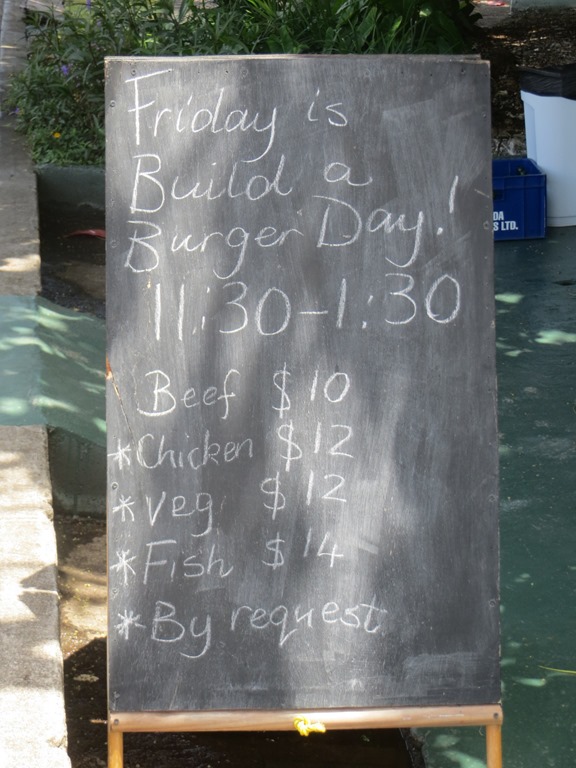 Friday is
Build a
Burger Day!
11:30-1:30
Beef $10
*Chicken $12
*Veg. $12
*Fish $14
*By request
DA
S LTD.